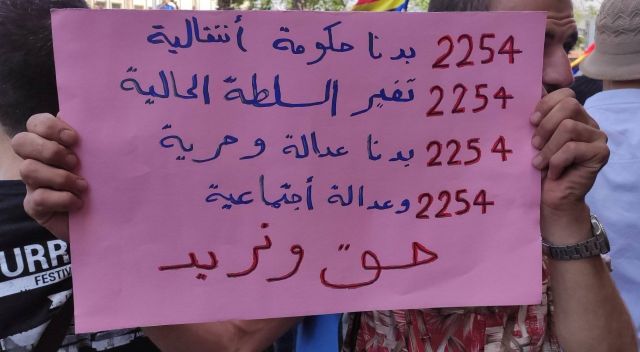 2254 بدنا حكومة أنتقالية
2254 تغير السلطة الحالية
2254 بدنا عدالة وحرية
2254 وعدالة أجتماعية
حق ونريد
URR
FESTIV